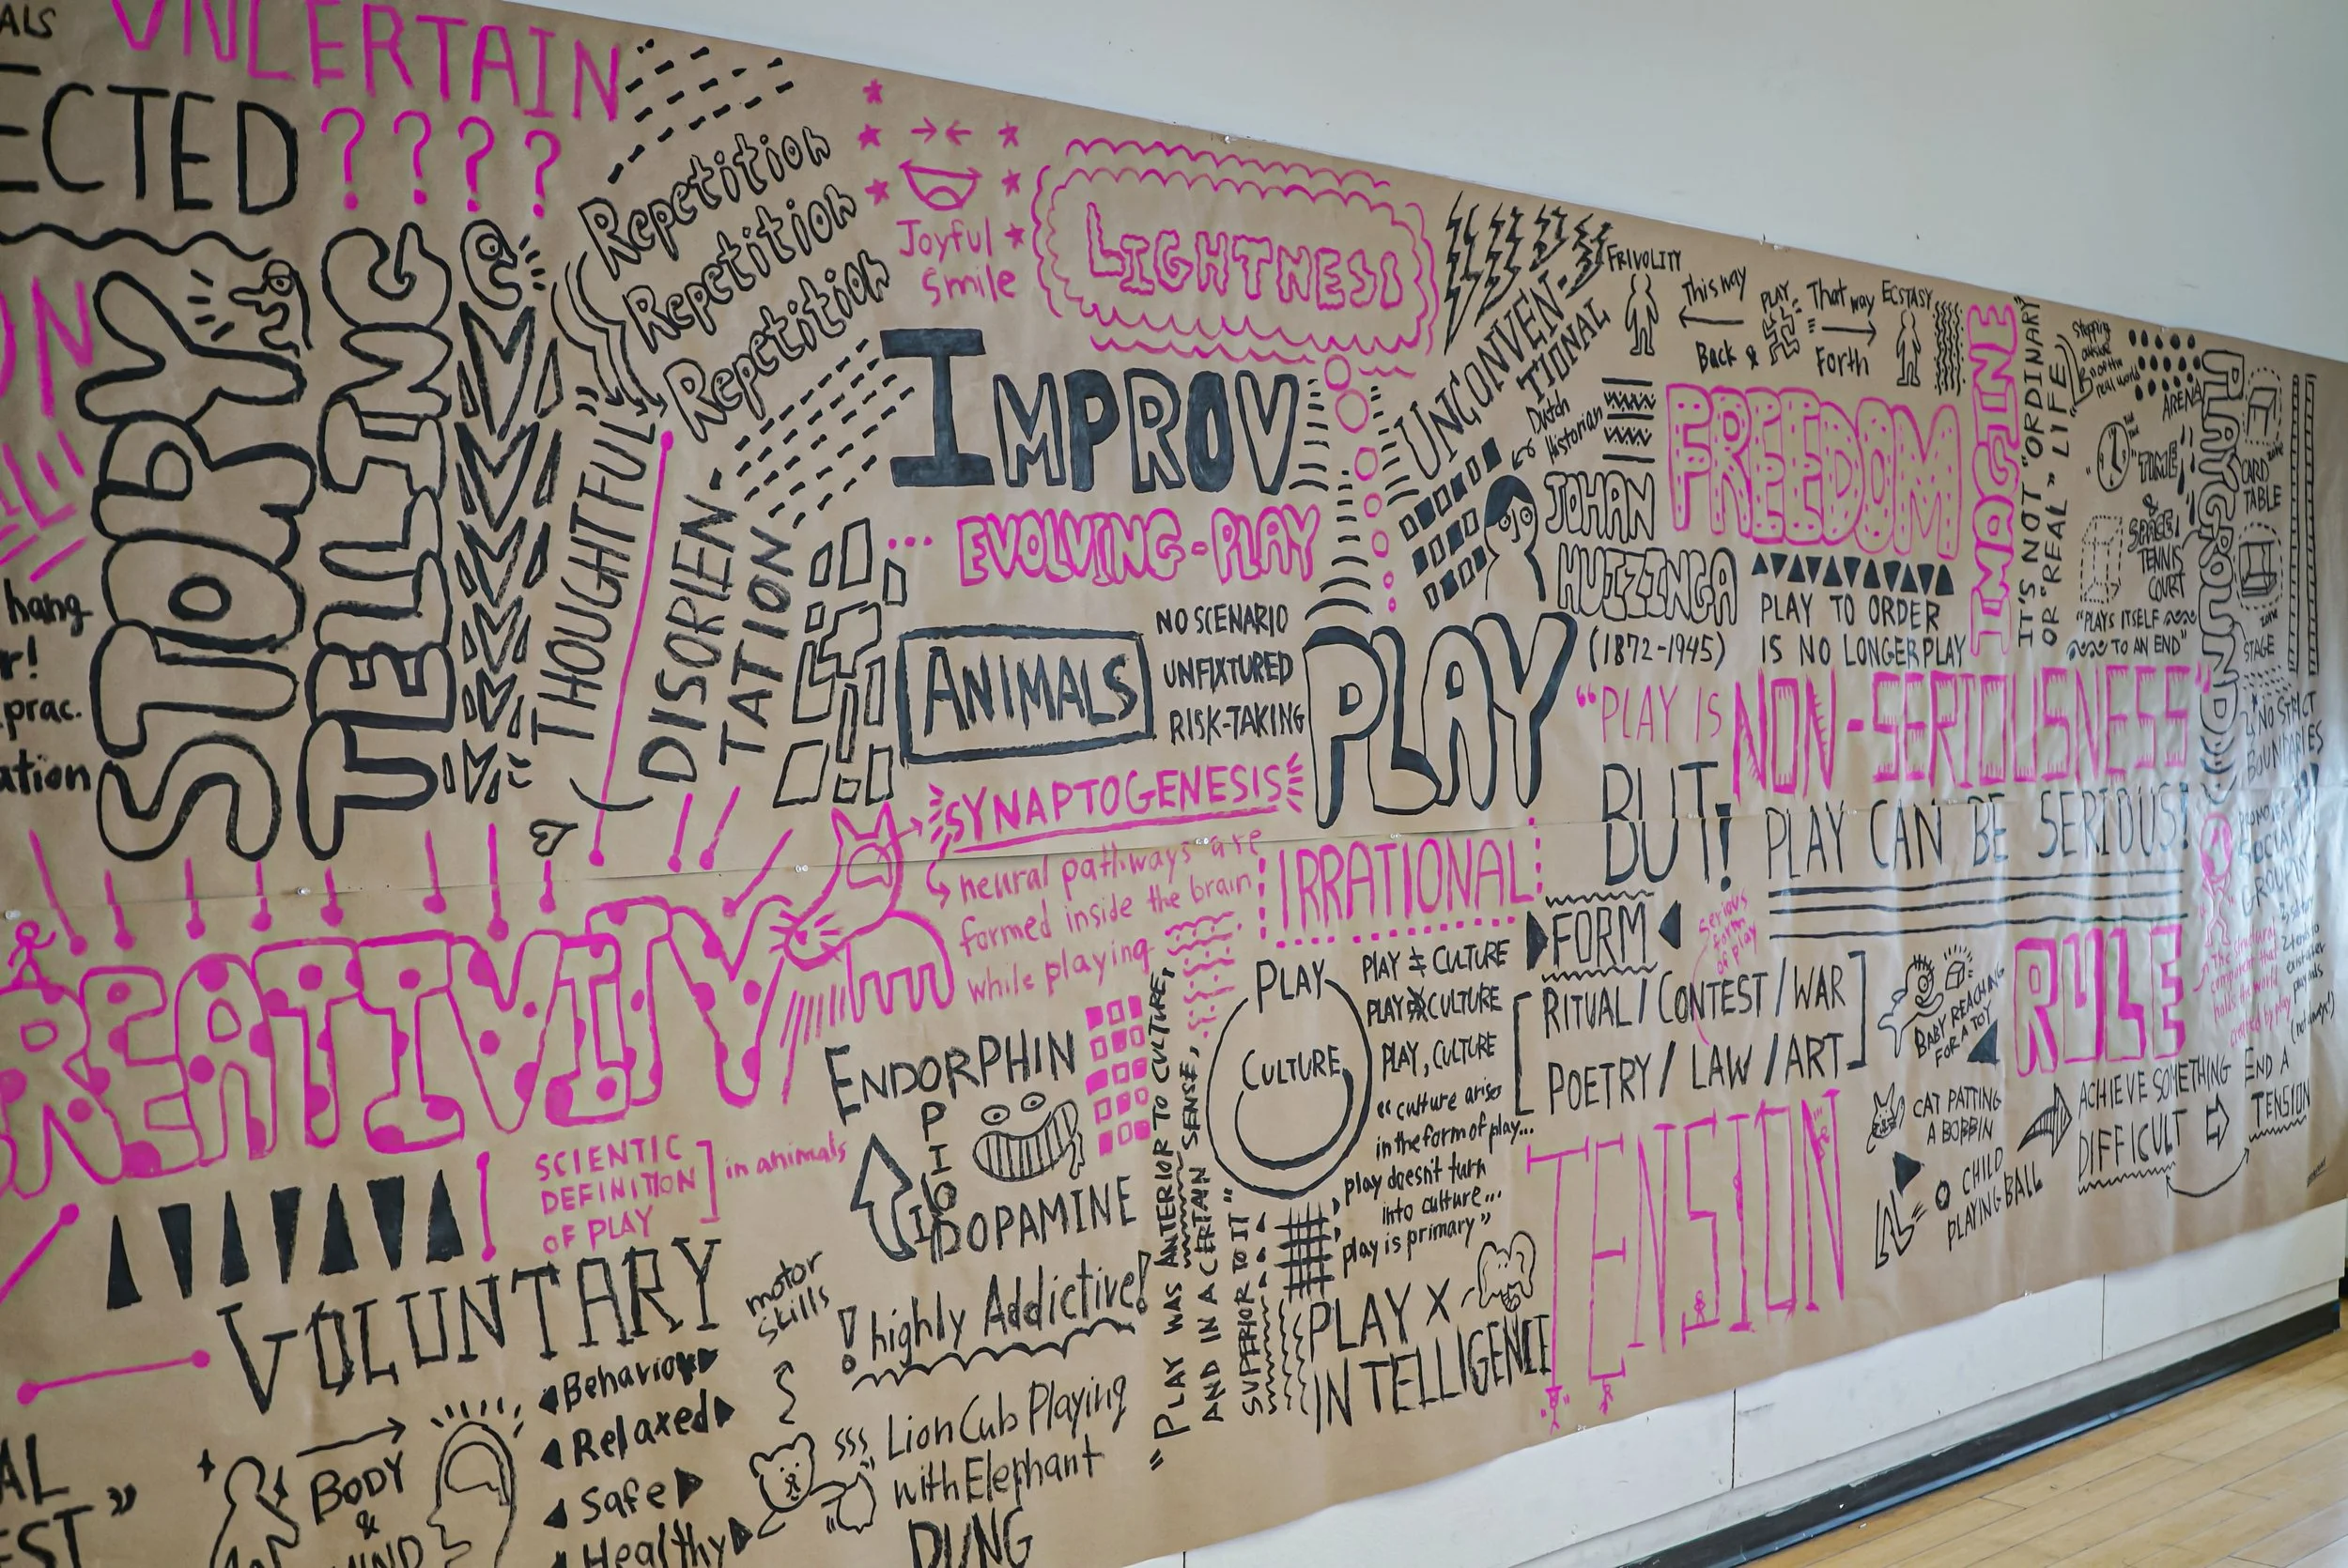 UNCERTAIN
ECTED
? ? ? ?
STORY
TELLING
Repetition
Repetition
Repetition
Joyful
Smile
LIGHTNESS
THOUGHTFUL"
DISORIEN-
TATION
IMPROV
EVOLVING-PLAY
ANIMALS
NO SCENARIO
UNFIXTURED
RISK-TAKING
UNCONVEN-
TIONAL
FRIVOLITY
This way
Back &
PLAY
That way
Forth
ECSTASY
Dutch
Historian
JOHAN
HUIZINGA
(1872-1945)
PLAY
FREEDOM
PLAY TO ORDER
IS NO LONGER PLAY
IMAGINE
IT'S NOT "ORDINARY"
OR "REAL" LIFE
ARENA
"TIME
&
SPACE"
TENNIS
COURT
"PLAYS ITSELF
TO AN END"
PLAYGROUND
CARD
TABLE
STAGE
NO STRICT
BOUNDARIES
"PLAY IS NON-SERIOUSNESS"
BUT! PLAY CAN BE SERIOUS!
hang
r!
prac.
ation
CREATIVITY
SYNAPTOGENESIS
neural pathways are
formed inside the brain
while playing
IRRATIONAL
FORM
serious
form
of play
RITUAL / CONTEST / WAR
POETRY / LAW / ART
PLAY
CULTURE
PLAY ≠ CULTURE
PLAY CULTURE
PLAY, CULTURE
"culture arises
in the form of play...
play doesn't turn
into culture...
play is primary"
BABY REACHING
FOR A TOY
CAT PATTING
A BOBBIN
CHILD
PLAYING BALL
RULE
ACHIEVE SOMETHING
DIFFICULT
END A
TENSION
TENSION
SCIENTIC
DEFINITION
OF PLAY
in animals
ENDORPHIN
OPIOID
DOPAMINE
! highly Addictive!
"PLAY WAS ANTERIOR TO CULTURE,
AND IN A CERTAIN SENSE,
SUPERIOR TO IT"
PLAY X
INTELLIGENCE
VOLUNTARY
motor
skills
Behaviour
Relaxed
Safe
Healthy
BODY
&
MIND
Lion Cub Playing
with Elephant
DUNG
AL
EST"